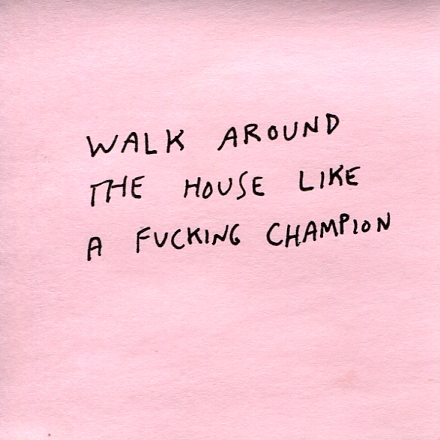 WALK AROUND
THE HOUSE LIKE
A FUCKING CHAMPION